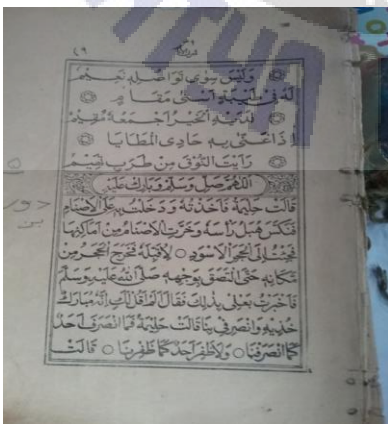 ٤٩
وَلَيْسَ سِوَى تَوَاصُلِهِ نَعِيْم
لَهُ فِي طَيْبَةٍ اَسْنٰى مَقَامٍ
فَدَيْتُهُ الْخَيْرُ اَجْمَعُهُ مُقِيْم
اِذَا غَنّٰى بِهِ حَادِي الْمَطَايَا
رَاَيْتَ النُّوْقَ مِنْ طَرَبٍ تَهِيْم
اَللّٰهُمَّ صَلِّ وَسَلِّمْ وَبَارِكْ عَلَيْهِ
قَالَتْ حَلِيْمَةُ فَاَخَذْتُهُ وَدَخَلْتُ بِهِ عَلَى الْاَصْنَامِ
فَنَكَسَ هُبَلُ رَأْسَهُ وَخَرَّتِ الْاَصْنَامُ مِنْ اَمَاكِنِهَا
فَجِئْتُ اِلَى الْحَجَرِ الْاَسْوَدِ ○ لِاُقَبِّلَهُ فَخَرَجَ الْحَجَرُ مِنْ
مَكَانِهِ حَتَّى الْتَصَقَ بِوَجْهِهِ صَلَّى اللّٰهُ عَلَيْهِ وَسَلَّمَ
فَاَخْبَرْتُ بَعْلِيْ بِذٰلِكَ فَقَالَ اَلَمْ اَقُلْ لَكِ اِنَّهُ مُبَارَكٌ
خُذِيْهِ وَانْصَرِفِيْ بِنَا قَالَتْ حَلِيْمَةُ فَمَا انْصَرَفَ اَحَدٌ
كَمَا انْصَرَفْنَا ○ وَلَا ظَفِرَ اَحَدٌ كَمَا ظَفِرْنَا ○ قَالَتْ